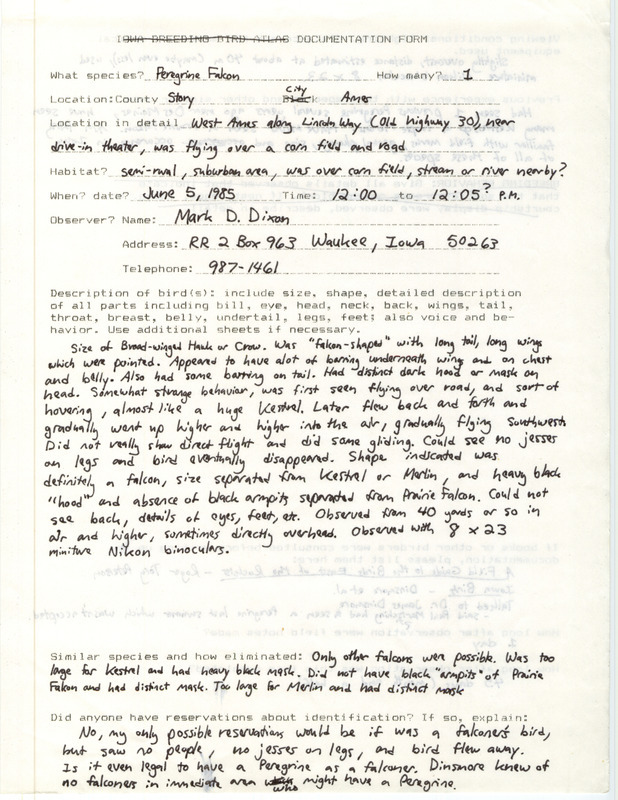 IOWA BREEDING BIRD ATLAS DOCUMENTATION FORM
What species? Peregrine Falcon How many? 1
Location: County Story City Block Ames
Location in detail West Ames along Lincoln Way (Old highway 30), near
drive-in theater, was flying over a corn field and road
Habitat? semi-rural, suburban area, was over corn field, stream or river nearby?
When? date? June 5, 1985 Time: 12:00 to 12:05? P.M.
Observer? Name: Mark D. Dixon
Address: RR 2 Box 963 Waukee, Iowa 50263
Telephone: 987-1461
Description of bird(s): include size, shape, detailed description
of all parts including bill, eye, head, neck, back, wings, tail,
throat, breast, belly, undertail, legs, feet; also voice and be-
havior. Use additional sheets if necessary.
Size of Broad-winged Hawk or Crow. Was "falcon-shaped" with long tail, long wings
which were pointed. Appeared to have alot of barring underneath wing and on chest
and belly. Also had some barring on tail. Had distinct dark hood or mask on
head. Somewhat strange behavior, was first seen flying over road, and sort of
hovering, almost like a huge Kestrel. Later flew back and forth and
gradually went up higher and higher into the air, gradually flying Southwest.
Did not really show direct flight and did some gliding. Could see no jesses
on legs and bird eventually disappeared. Shape indicated was
definitely a falcon, size separated from Kestrel or Merlin, and heavy black
"hood" and absence of black armpits separated from Prairie Falcon. Could not
see back, details of eyes, feet, etc. Observed from 40 yards or so in
air and higher, sometimes directly overhead. Observed with 8 x 23
miniture Nikon binoculars.
Similar species and how eliminated: Only other falcons were possible. Was too
large for Kestrel and had heavy black mask. Did not have black "armpits" of Prairie
Falcon and had distinct mask. Too large for Merlin and had distinct mask
Did anyone have reservations about identification? If so, explain:
No, my only possible reservations would be if was a falconer's bird,
but saw no people, no jesses on legs, and bird flew away.
Is it even legal to have a Peregrine as a falconer. Dinsmore knew of
no falconers in immediate area who might have a Peregrine.